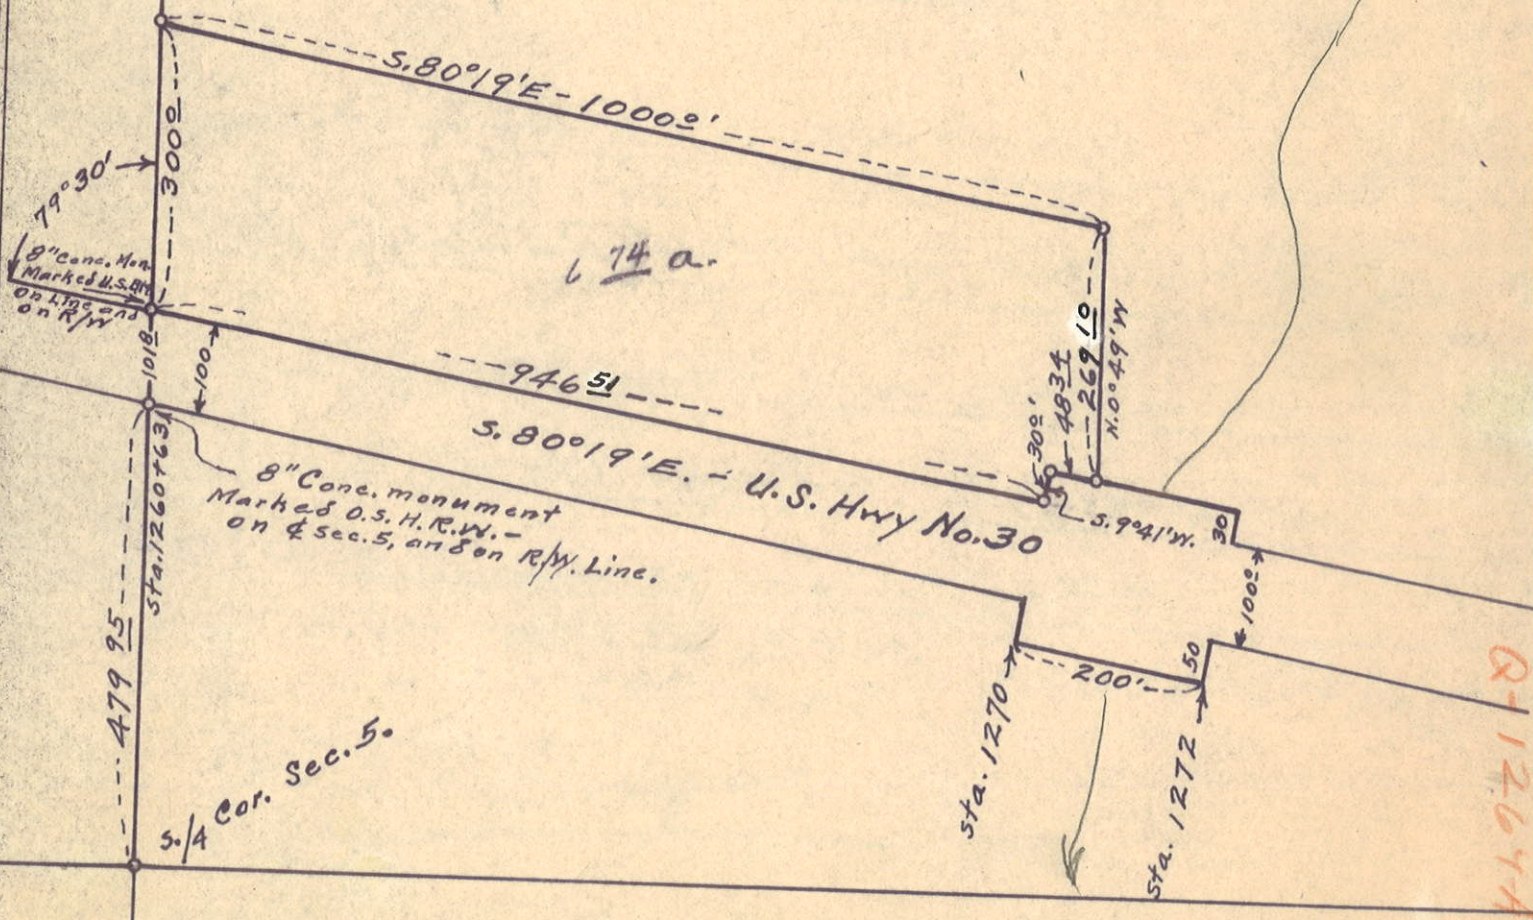 S. 80°19'E - 1000º'
300º
79°30'
8" Conc. Mon.
Marked U.S.
on Line and
on R/W
6 74 a.
269 10
N. 0°49'W
48 34
30º'
946 51
1018
100
S. 80°19'E. - U.S. Hwy No. 30
S. 9°41'W.
30
100º
8" Conc. monument
Marked O.S.H.R.W. -
on ¢ sec. 5, and on R/W. Line.
Sta. 1260+63
479 95
200'
50
Sta. 1270
Sta. 1272
S. 1/4 Cor. Sec. 5.
Q-1267A